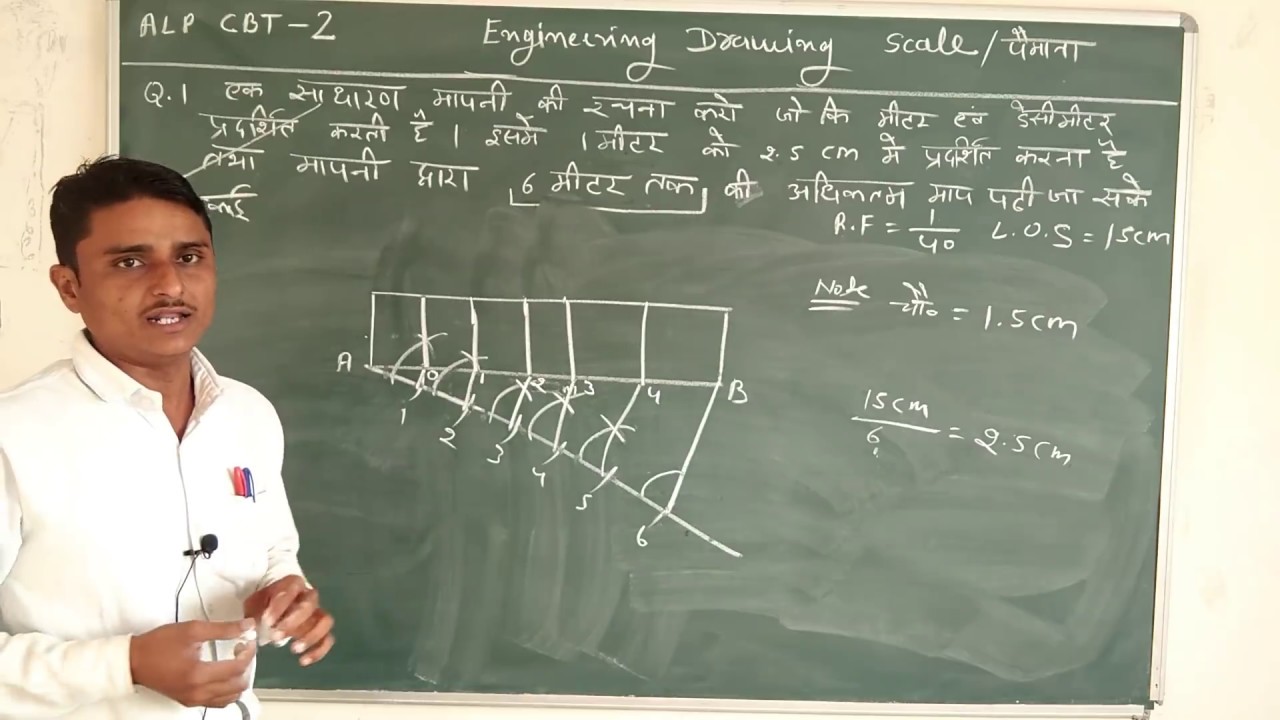 ALP CBT-2
Engineering Drawing scale/पैमाना
Q.1 एक साधारण मापनी की रचना करो जो कि मीटर एवं डेसीमीटर
प्रदर्शित करती है । इसमे 1 मीटर को 2.5 cm में प्रदर्शित करना है
तथा मापनी द्वारा 6 मीटर तक की अधिकतम माप पढ़ी जा सके
R.F = 1/40 L.O.S = 15cm
Note चौ० = 1.5cm
A 0 1 2 3 4 B
1 2 3 4 5 6
15cm/6 = 2.5cm